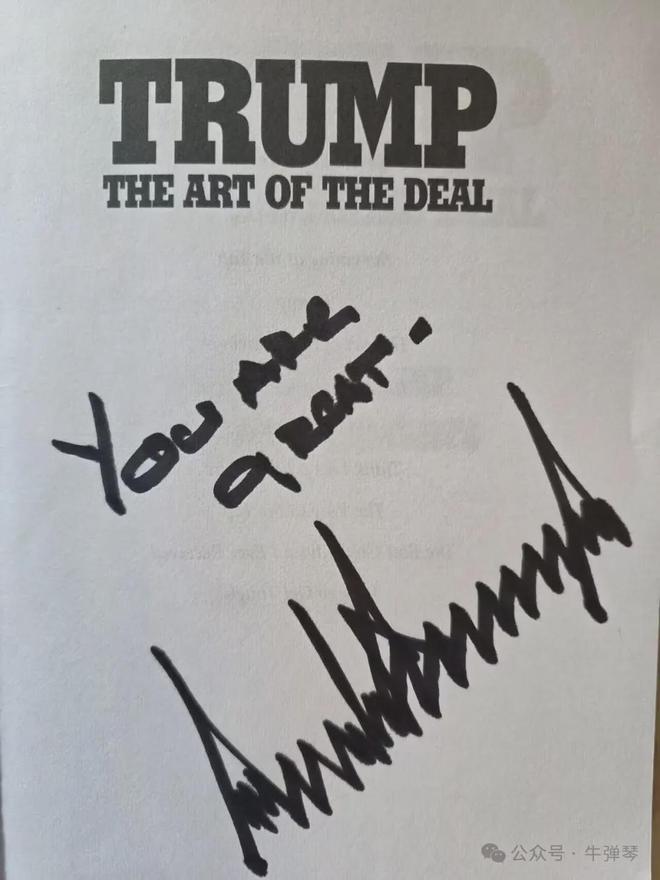 TRUMP
THE ART OF THE DEAL
YOU ARE
GREAT.
公众号 · 牛弹琴